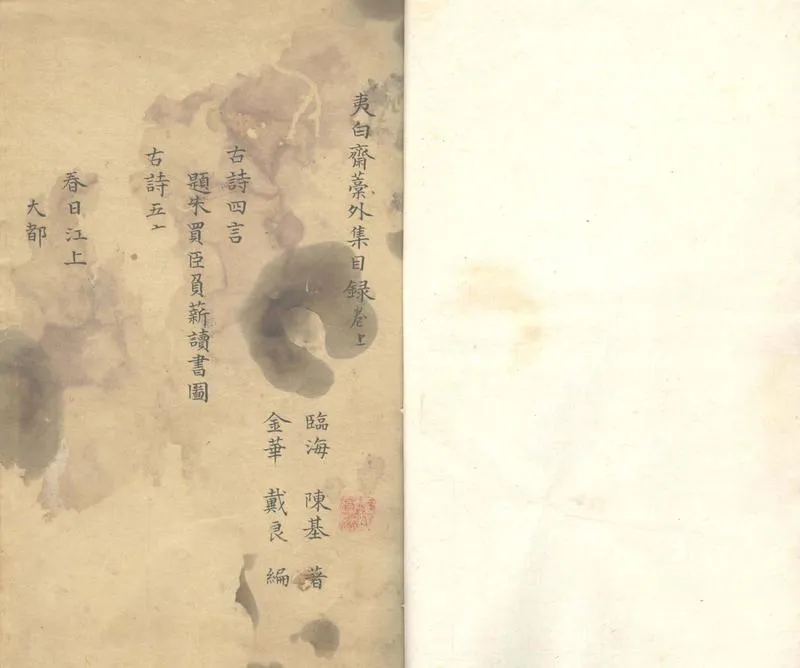 夷白齋藁外集目録卷上
臨海 陳基 著
金華 戴良 編
古詩四言
題朱買臣負薪讀書圖
古詩五
春日江上
大都